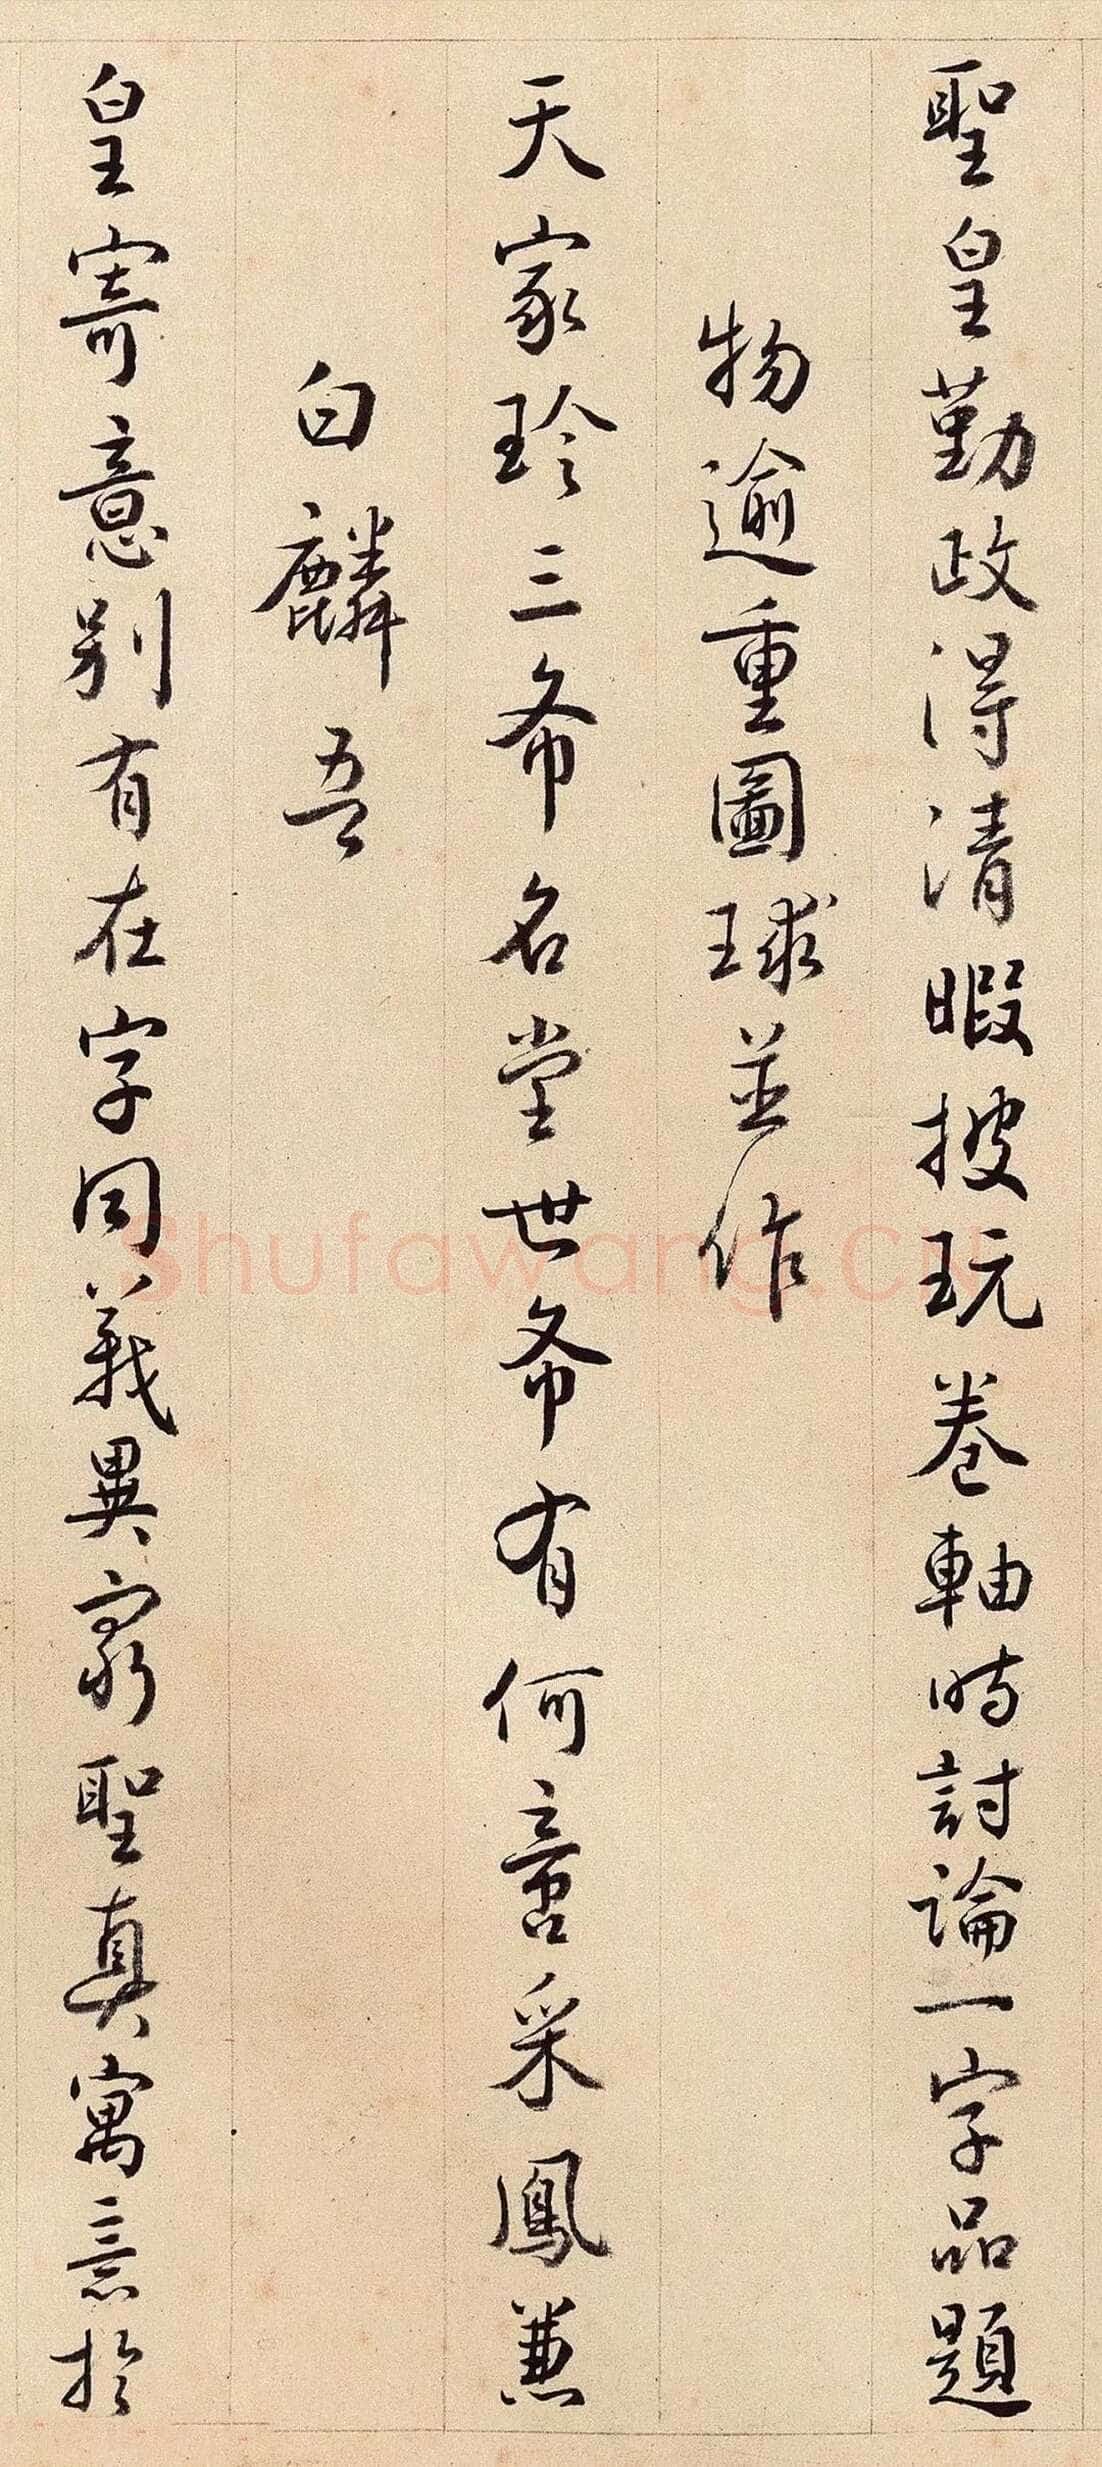 聖皇勤政得清暇披玩卷軸時討論一字品題
物逾重圖球並作
天家珍三希名堂世希有何啻采鳳兼
白麟吾
皇寄意別有在字同義異窮聖真寓意於
Shufawang.cn